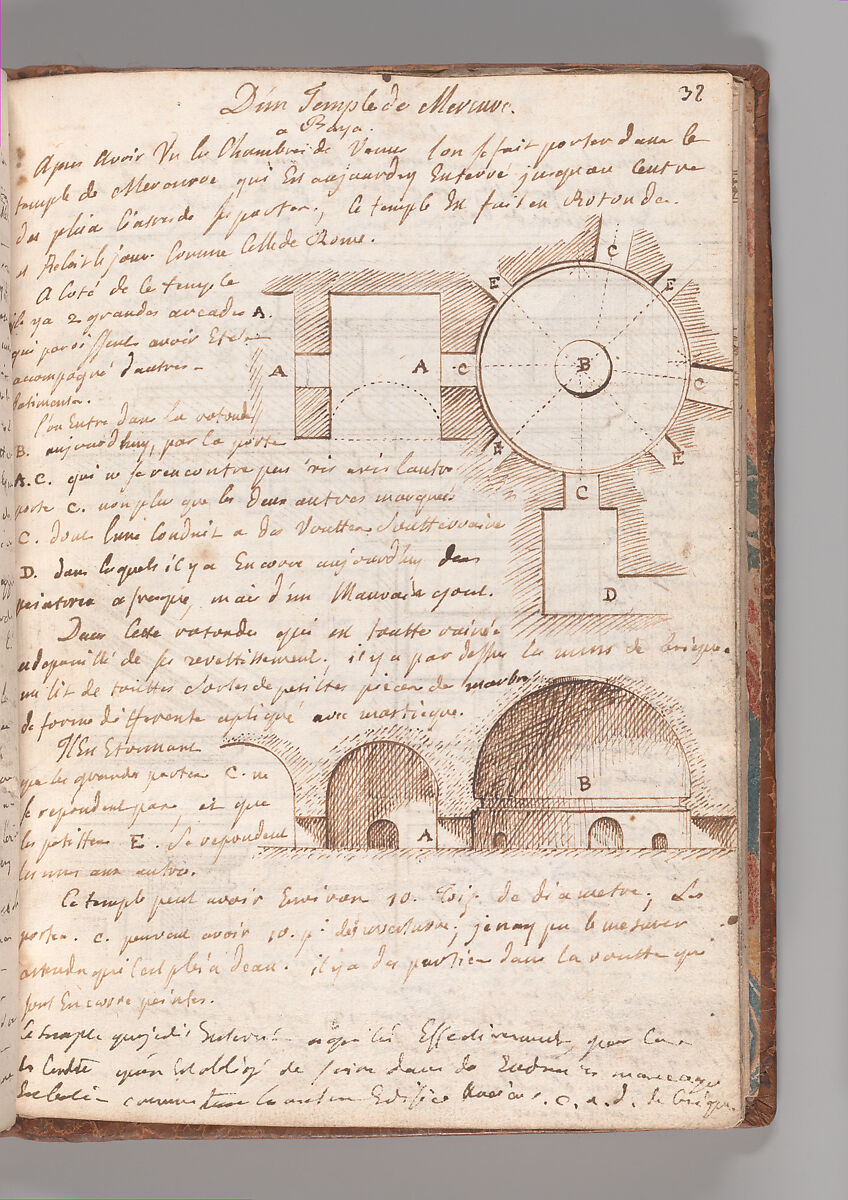 32
D'un Temple de Mercure.
a Baya.
Apres avoir Vu les Chambres de Venus l'on se fait porter dans le
temple de Mercure qui Est aujourdhuy Enterré jusqu'au Centre
des de ses portes, Ce temple En fait en Rotonde.
et Reçoit le jour Comme Celle de Rome.
A Coté de le temple
il y a 2 grandes arcades A.
qui paroissent avoir Eté
accompagné d'autres
Batiments.
l'on Entre dans la rotonde
B. aujourdhuy, par la porte
A.C. qui ne se rencontre pas vis avis l'autre
porte C. non plus que les deux autres marqués
C. dont l'une Conduit a des Voutes Soutteraine
D. dans lesquels il y a Encore aujourdhuy des
peintures a fresque, mais d'un Mauvais gout.
Dans Cette rotonde qui est toutte ruinée
et depouillé de ses revettissement. il y a par dessus les murs de brique
un lit de touttes Sortes de petittes pieces de marbre
de forme differente apliqué avec masticque.
Il Est Etonnant
que les grandes portes C. ne
se repondent pas, et que
les petittes E. Se repondent
les unes aux autres.
Ce temple peut avoir Environ 10. Toise de diametre; Les
portes. C. peuvent avoir 10. pi d'ouverture; je n'ay pu le mesurer
attendu qu'il est plein d'eau. il y a des parties dans la voutte qui
sont Encore peintes.
Ce temple que je dis Enterré Effectivement, pour
les qu'on est obligé de faire dans de marecage
comme Edifice . c. a. d. de brique
A
A
A
C
B
C
E
E
C
E
E
C
D
A
B